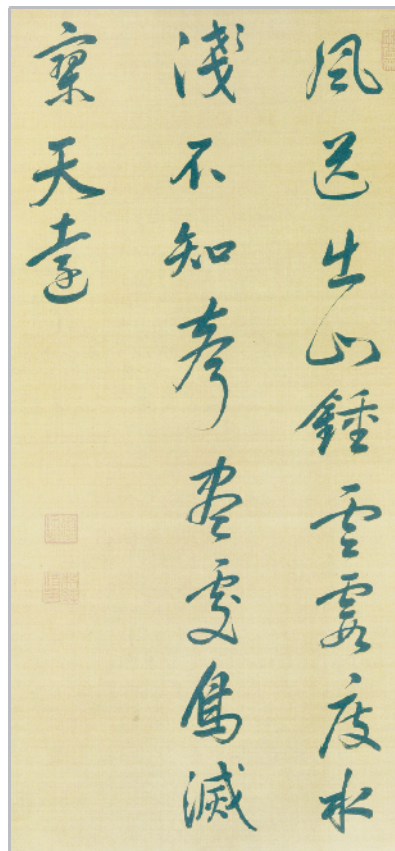 風送出山鍾雲霞度水
淺不知聲盡處鳥滅
寥天遠